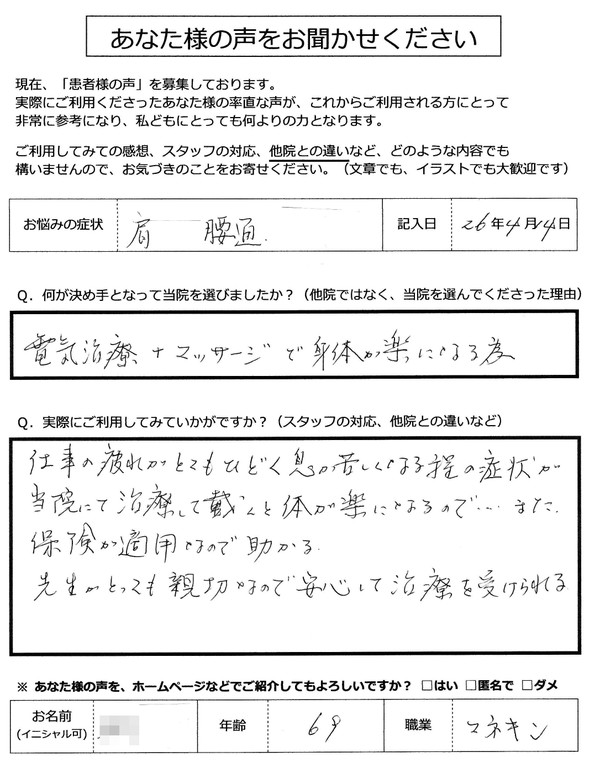 あなた様の声をお聞かせください
現在、「患者様の声」を募集しております。
実際にご利用くださったあなた様の率直な声が、これからご利用される方にとって
非常に参考になり、私どもにとっても何よりの力となります。
ご利用してみての感想、スタッフの対応、他院との違いなど、どのような内容でも
構いませんので、お気づきのことをお寄せください。（文章でも、イラストでも大歓迎です）
お悩みの症状 肩 腰通. 記入日 26年4月14日
Q．何が決め手となって当院を選びましたか？（他院ではなく、当院を選んでくださった理由）
電気治療＋マッサージで身体が楽になる為
Q．実際にご利用してみていかがですか？（スタッフの対応、他院との違いなど）
仕事の疲れがとてもひどく息が苦しくなる程の症状が
当院にて治療して戴くと体が楽になるので…また、
保険が適用なので助かる
先生がとっても親切なので安心して治療を受けられる
※ あなた様の声を、ホームページなどでご紹介してもよろしいですか？ □はい □匿名で □ダメ
お名前
(イニシャル可) 年齢 69 職業 マネキン